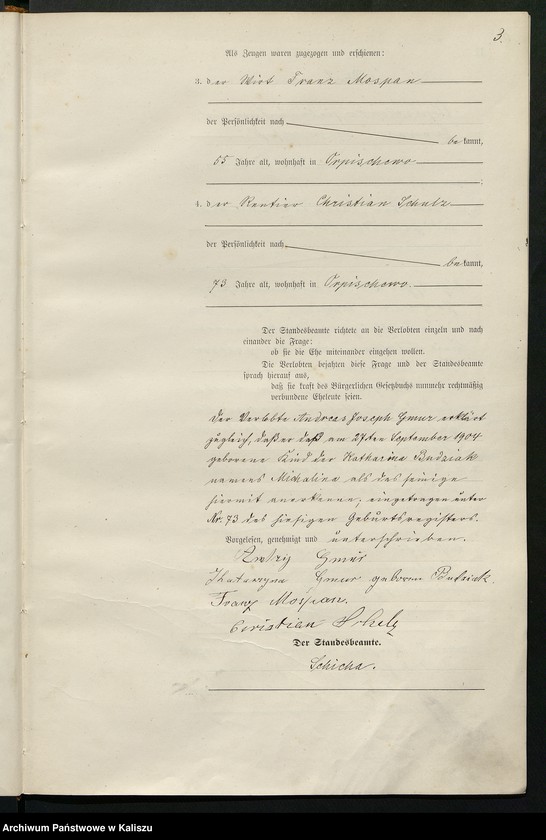 3.
Als Zeugen waren zugezogen und erschienen:
3. der Wirt Franz Mospan
der Persönlichkeit nach
be kannt,
55 Jahre alt, wohnhaft in Orpischewo
;
4. der Rentier Christian Schulz
der Persönlichkeit nach
be kannt,
73 Jahre alt, wohnhaft in Orpischewo.
Der Standesbeamte richtete an die Verlobten einzeln und nach
einander die Frage:
ob sie die Ehe miteinander eingehen wollen.
Die Verlobten bejahten diese Frage und der Standesbeamte
sprach hierauf aus,
daß sie kraft des Bürgerlichen Gesetzbuchs nunmehr rechtmäßig
verbundene Eheleute seien.
Der Verlobte Andreas Joseph Gmur erklärt
zugleich, daß er daß am 27ten September 1904
geborene Kind der Katharina Budziak
namens Michalina als das seinige
hiermit anerkenne; eingetragen unter
Nr. 73 des hiesigen Geburtsregisters.
Vorgelesen, genehmigt und unterschrieben.
Gmur
Katarzyna Gmur geborene
Franz Mospan.
Christian Schulz
Der Standesbeamte.
Schicha.
Archiwum Państwowe w Kaliszu